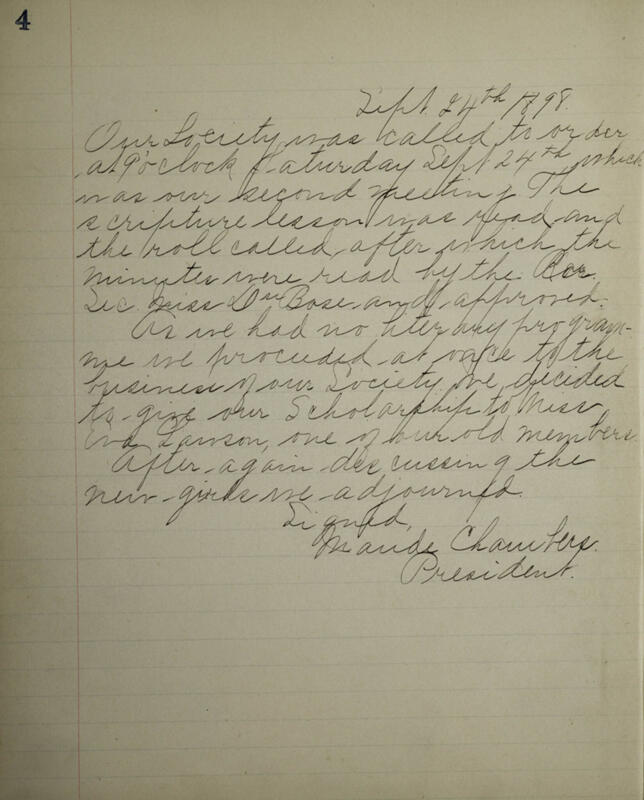 4
Sept. 24th 1898.
Our Society was called to order
at 9 o'clock Saturday Sept 24th, which
was our second meeting. The
scripture lesson was read and
the roll called, after which the
minutes were read by the Rec.
Sec. Miss DuBose and approved.
As we had no literary program-
me we proceeded at once to the
business of our Society. We decided
to give our Scholarship to Miss
Eva Lawson, one of our old members
After again discussing the
new girls we adjourned.
Signed,
Maude Chambers.
President.